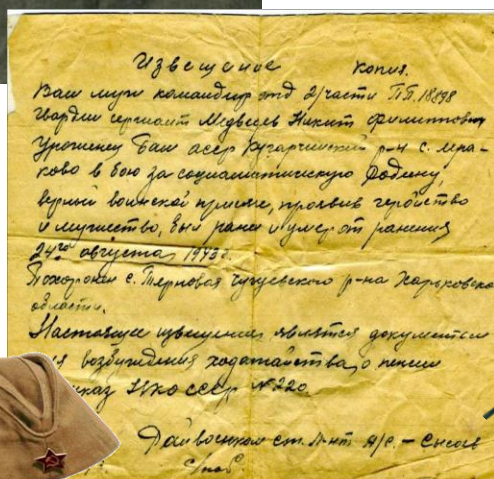 Извещение копия.
Ваш муж командир отд 2/части П.П. 18898
Гвардии сержант Медведев Никит Филиппович
Уроженец Баш асср Кугарчинский р-н с. Мра-
ково в бою за социалистическую Родину,
верный воинской присяге, проявив геройство
и мужество, был ранен и умер от ранения
24го августа 1943 г.
Похоронен с. Терновая Чугуевского р-на Харьковской
области.
Настоящее извещение является документом
возбуждения ходатайства о пенсии
приказ НКО ссср №220
Райвоенком ст. л-нт А/с. -